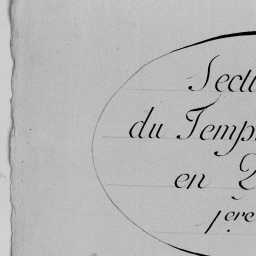 Secti
du Temp
en
1ere